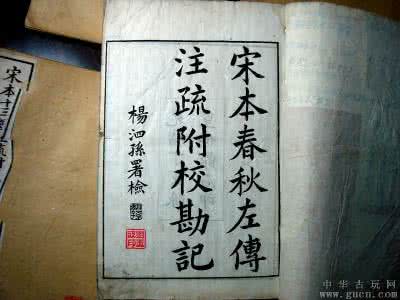 宋本春秋左傳
注疏附校勘記
楊泗孫署檢
宋本十三經注疏
中华古玩网
www.gucn.com